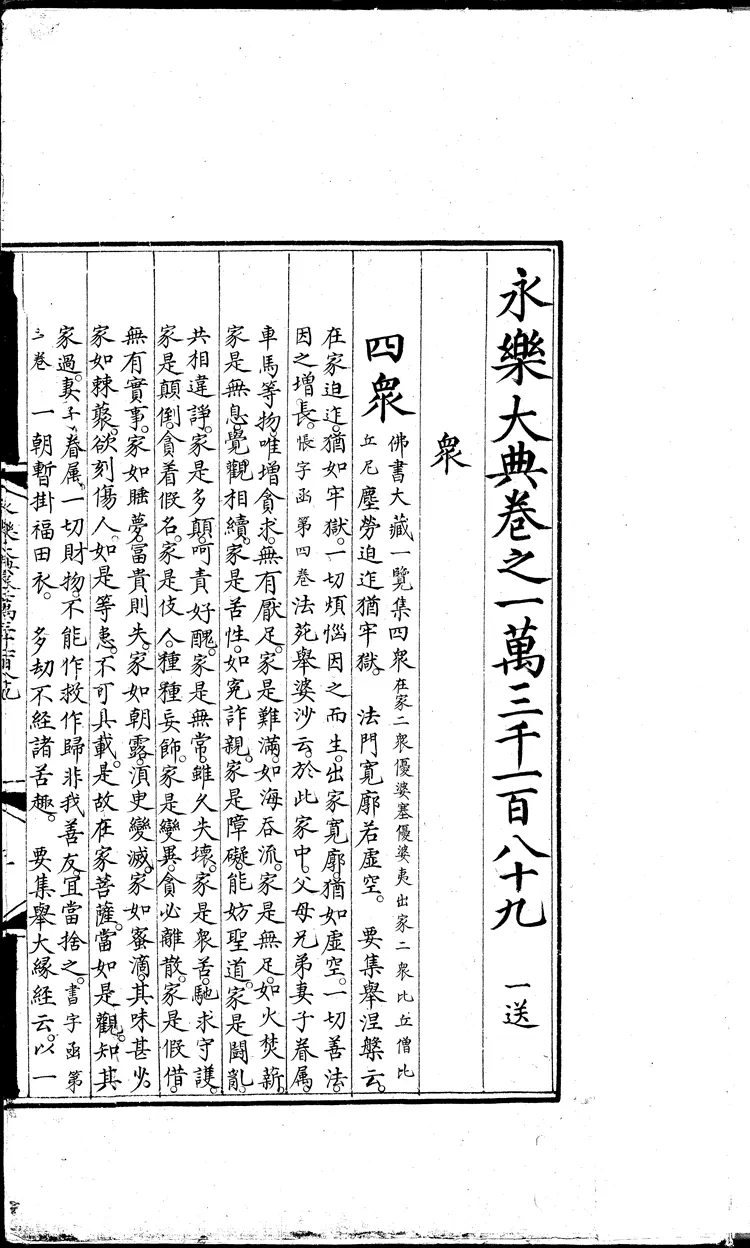 永樂大典卷之一萬三千一百八十九　一送
衆
四衆
佛書大藏一覽集四衆在家二衆優婆塞優婆夷出家二衆比丘僧比
丘尼塵勞迫迮猶牢獄。　法門寬廓若虛空。　要集舉涅槃云。
在家迫迮。猶如牢獄。一切煩惱因之而生。出家寬廓。猶如虛空。一切善法。
因之增長。悵字函第四卷法苑舉婆沙云。於此家中。父母兄弟妻子眷属。
車馬等物。唯增貪求。無有厭足。家是難滿。如海吞流。家是無足。如火焚薪。
家是無息。覺觀相續。家是苦性。如寃詐親。家是障礙。能妨聖道。家是鬪亂。
共相違諍。家是多顛。呵責好醜。家是無常。雖久失壞。家是衆苦。馳求守護。
家是顛倒。貪着假名。家是伎人。種種妄飾。家是變異。貪必離散。家是假借。
無有實事。家如睡夢。冨貴則失。家如朝露。湏吏變滅。家如蜜滴。其味甚少。
家如棘䕺。欲刻傷人。如是等患。不可具載。是故在家菩薩。當如是觀。知其
家過。妻子眷属。一切財物。不能作救作歸非我善友。宜當捨之。書字函第
三卷　一朝暫掛福田衣。　多劫不經諸苦趣。　要集舉大縁経云。以一